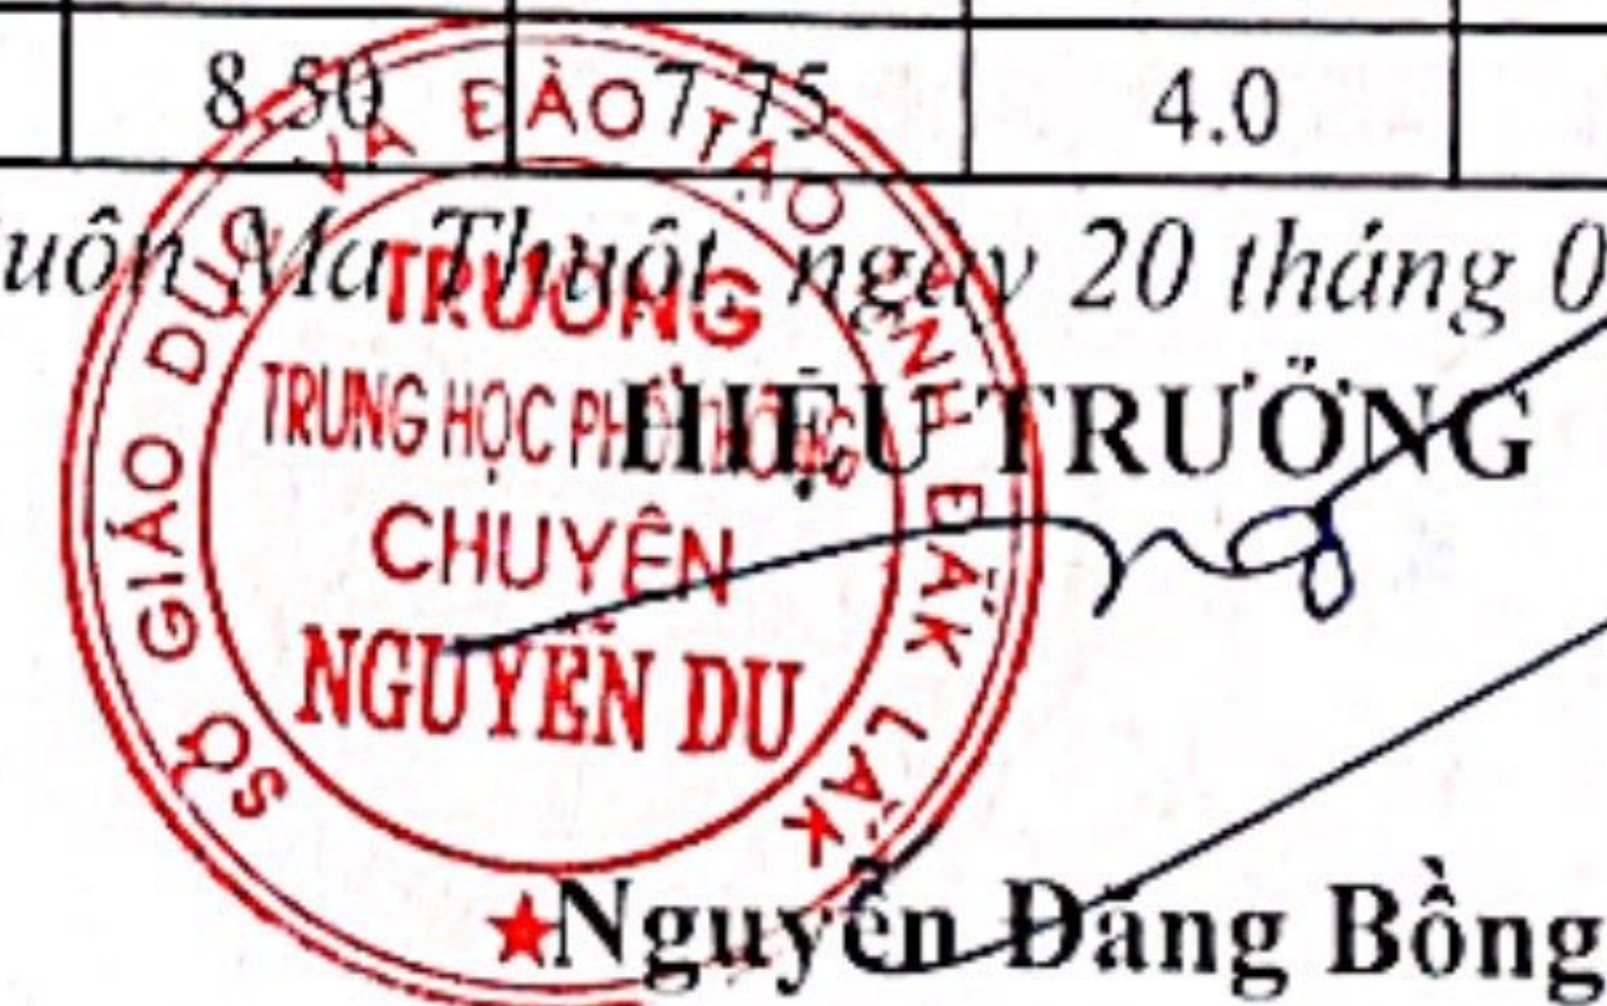 8.50 7.75 4.0
uôn Ma Thuột, ngày 20 tháng 0
HIỆU TRƯỞNG
SỞ GIÁO DỤC VÀ ĐÀO TẠO TỈNH ĐẮK LẮK
TRƯỜNG
TRUNG HỌC PHỔ THÔNG
CHUYÊN
NGUYỄN DU
★
Nguyễn Đăng Bồng